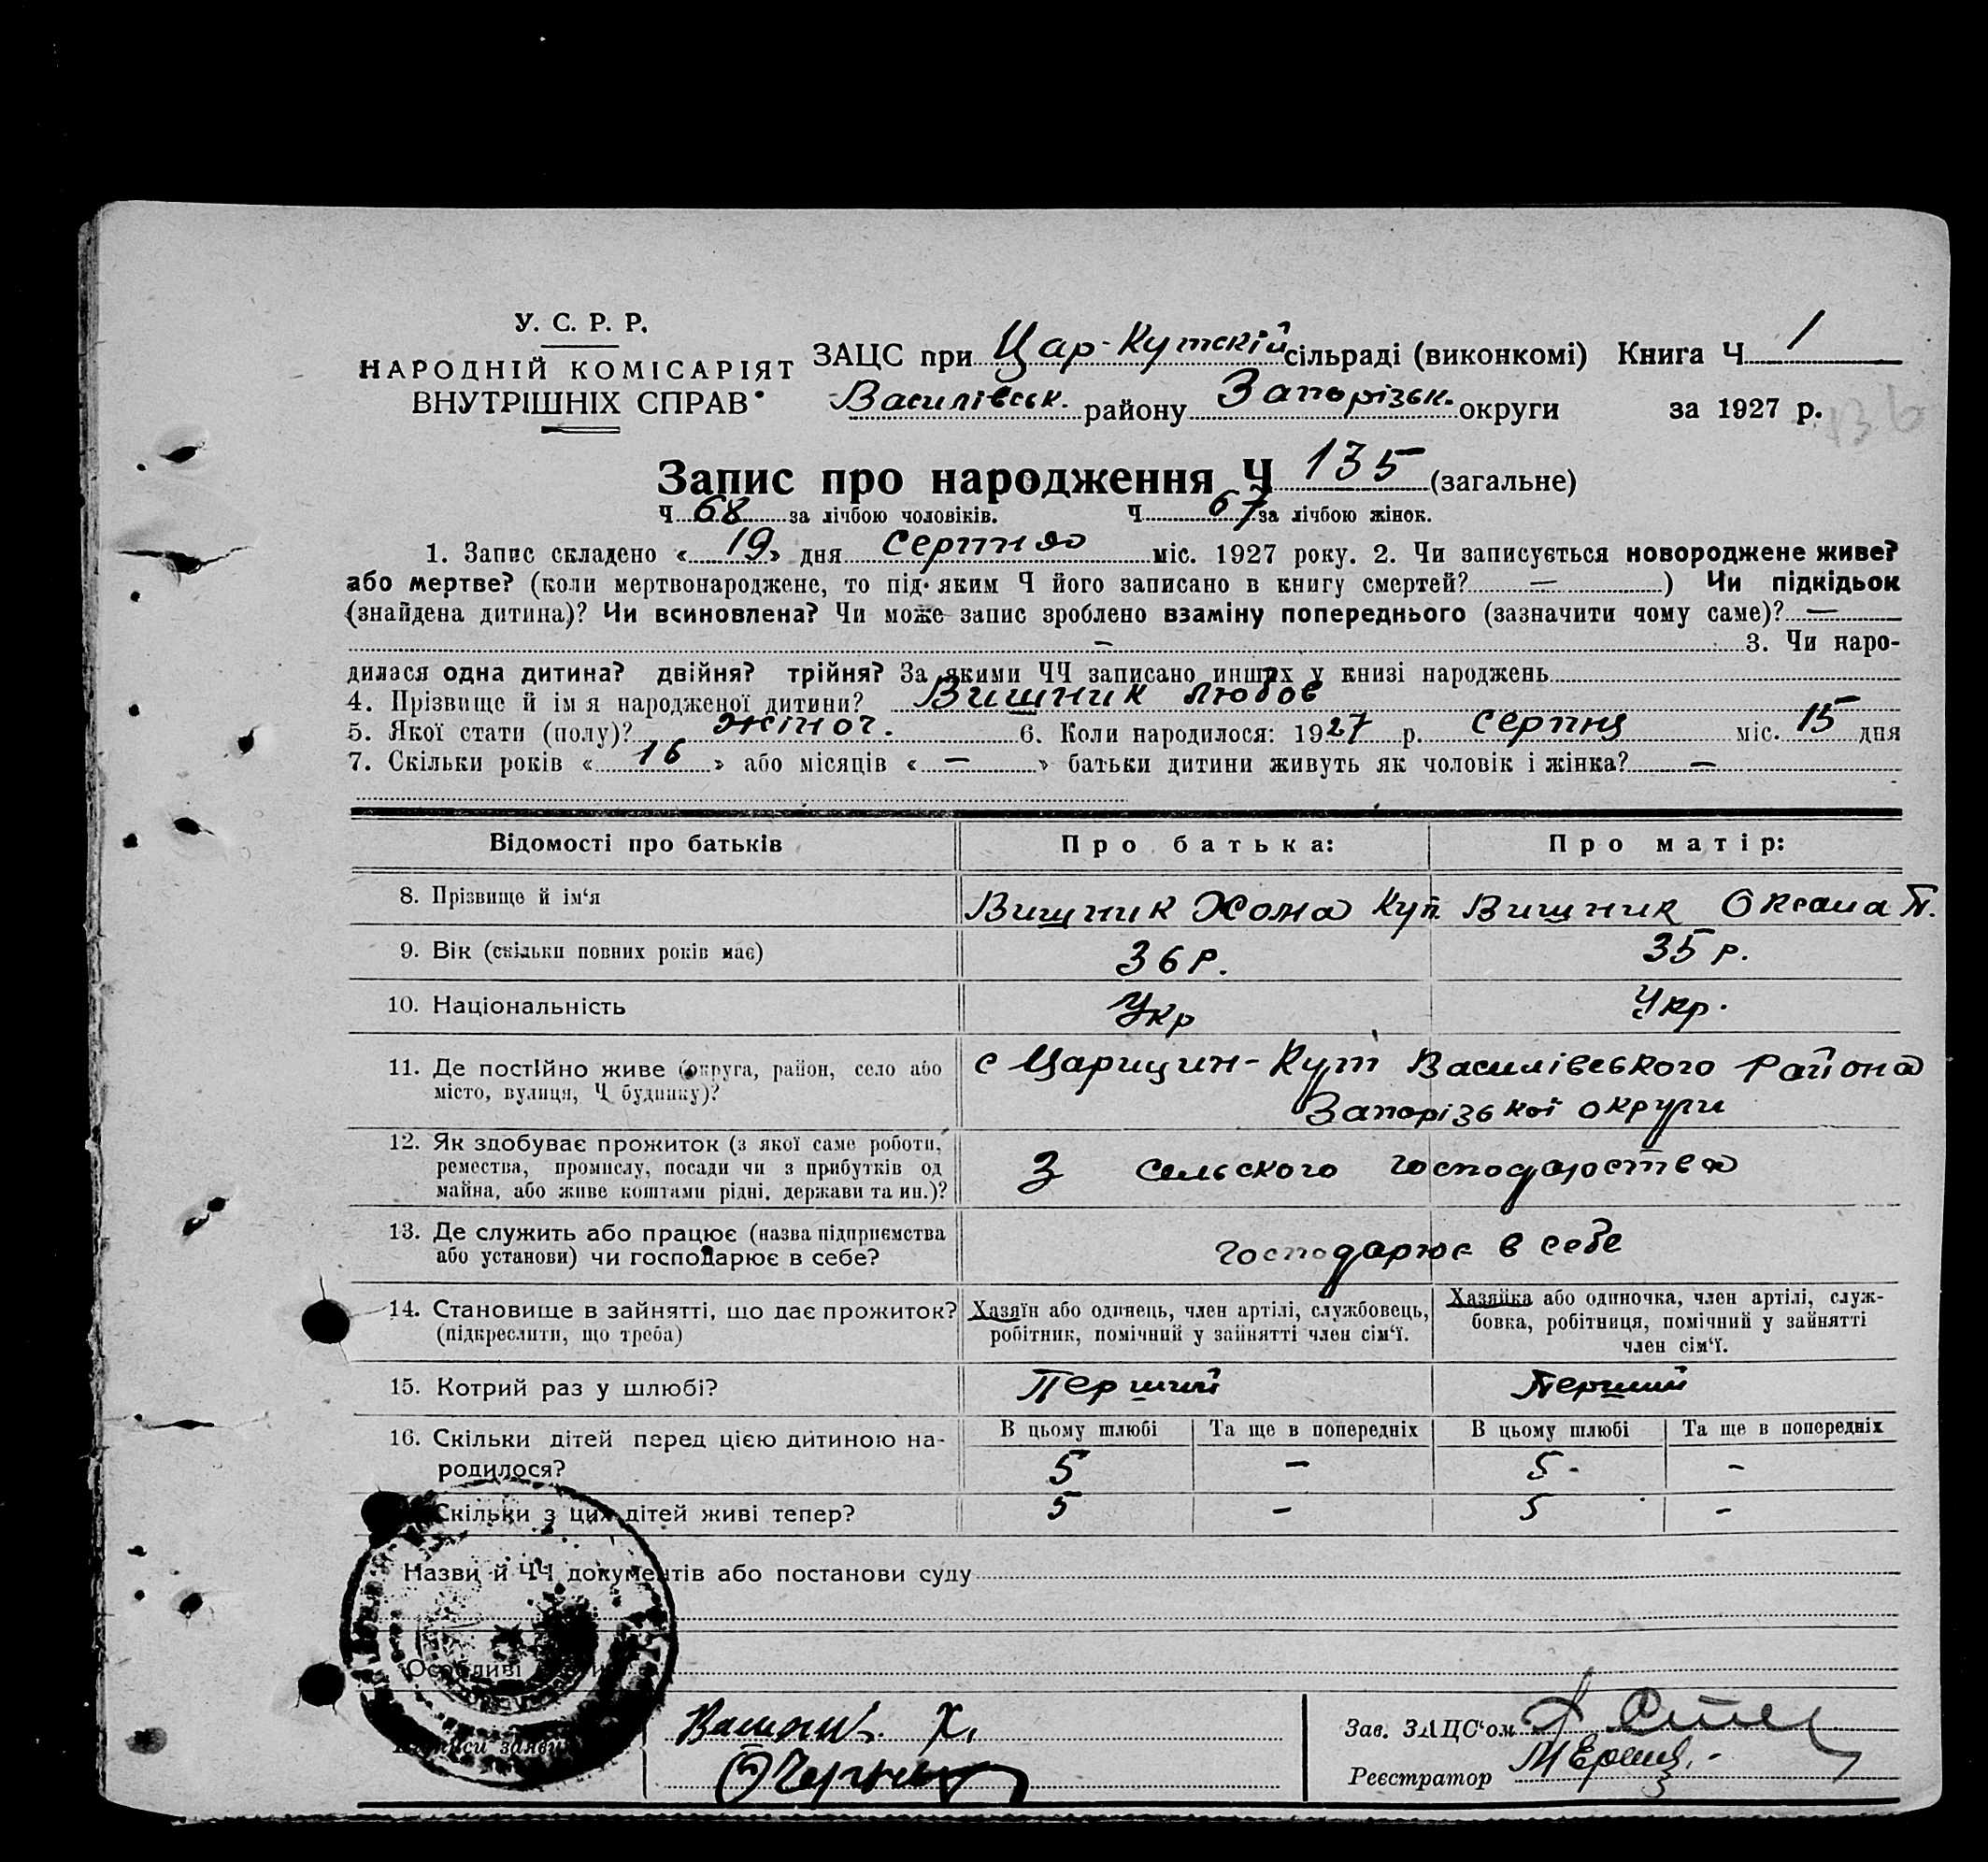 У. С. Р. Р.
НАРОДНІЙ КОМІСАРІЯТ
ВНУТРІШНІХ СПРАВ
ЗАЦС при Цар-Кутскій сільраді (виконкомі) Книга Ч 1
Василівськ. району Запорізьк. округи за 1927 р.
Запис про народження Ч 135 (загальне)
Ч 68 за лічбою чоловіків. Ч 67 за лічбою жінок.
1. Запис складено « 19 » дня серпня міс. 1927 року. 2. Чи записується новороджене живе?
або мертве? (коли мертвонароджене, то під яким Ч його записано в книгу смертей? — ) Чи підкідьок
(знайдена дитина)? Чи всиновлена? Чи може запис зроблено взаміну попереднього (зазначити чому саме)? —
— 3. Чи наро-
дилася одна дитина? двійня? трійня? За якими ЧЧ записано инших у книзі народжень
4. Прізвище й імя народженої дитини? Вишник Любов
5. Якої стати (полу)? жіноч. 6. Коли народилося: 1927 р. серпня міс. 15 дня
7. Скільки років « 16 » або місяців « — » батьки дитини живуть як чоловік і жінка? —
Відомості про батьків Про батька: Про матір:
8. Прізвище й ім‘я Вишник Хома Куп. Вишник Оксана П.
9. Вік (скільки повних років має) 36 р. 35 р.
10. Національність Укр Укр.
11. Де постійно живе (округа, район, село або
місто, вулиця, Ч будинку)? с Царицин-Кут Василівського Района
Запорізької округи
12. Як здобуває прожиток (з якої саме роботи,
ремества, промислу, посади чи з прибутків од
майна, або живе коштами рідні, держави та ин.)? З сельского господарства
13. Де служить або працює (назва підприємства
або установи) чи господарює в себе? господарює в себе
14. Становище в зайнятті, що дає прожиток?
(підкреслити, що треба)
Хазяїн або одинець, член артілі, службовець,
робітник, помічний у зайнятті член сім‘ї.
Хазяйка або одиночка, член артілі, служ-
бовка, робітниця, помічний у зайнятті
член сім‘ї.
15. Котрий раз у шлюбі? Перший Перший
16. Скільки дітей перед цією дитиною на-
родилося?
В цьому шлюбі Та ще в попередніх В цьому шлюбі Та ще в попередніх
5 – 5 – –
Скільки з цих дітей живі тепер? 5 – 5 –
Назви й ЧЧ документів або постанови суду
Особливі
Х.
Зав. ЗАЦС‘ом
Реєстратор